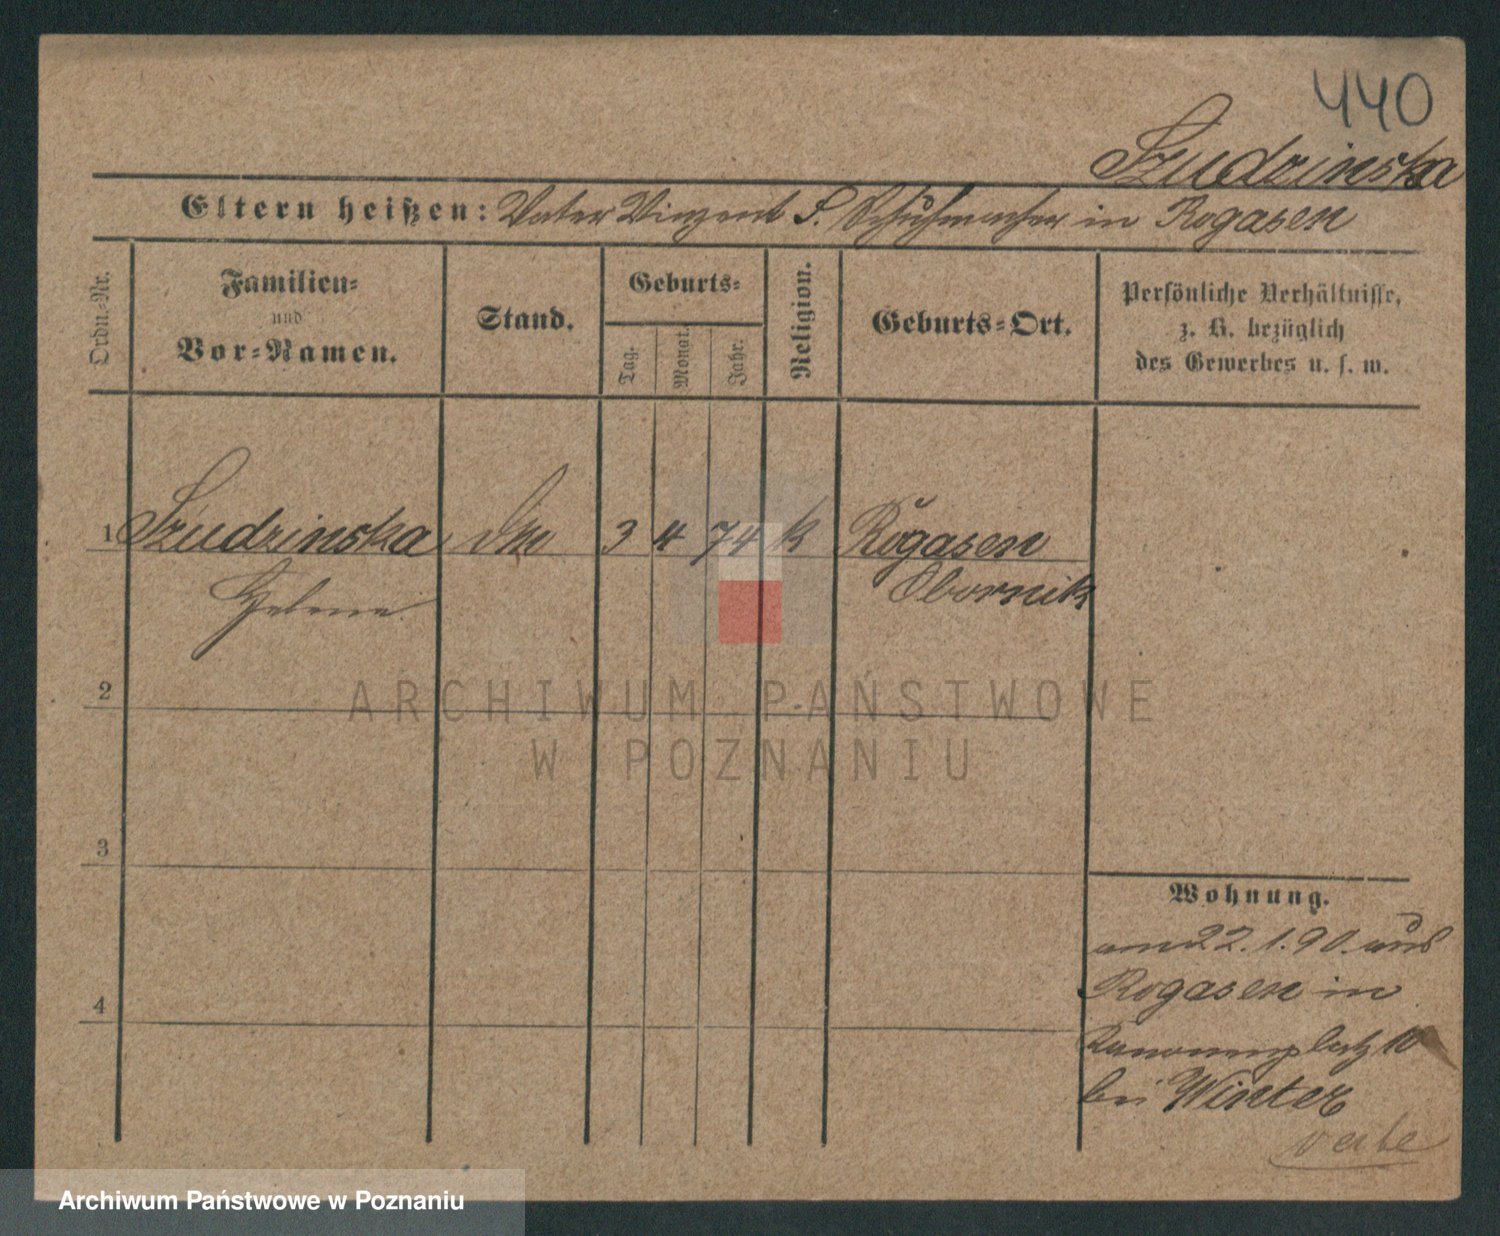 440
Szudzinska
Eltern heißen: Vater Vinzent S. Schuhmacher in Rogasen
Ordn.-Nr.
Familien-
und
Vor-Namen.
Stand.
Geburts-
Tag.
Monat.
Jahr.
Religion.
Geburts-Ort.
Persönliche Verhältnisse,
z. B. bezüglich
des Gewerbes u. s. w.
1 Szudzinska 3 4 74 k Rogasen
Helene Obornik
2
ARCHIWUM PAŃSTWOWE
W POZNANIU
3
Wohnung.
am 22.1.90. aus
Rogasen in
Kanonenplatz 10
bei Winter
4
Archiwum Państwowe w Poznaniu